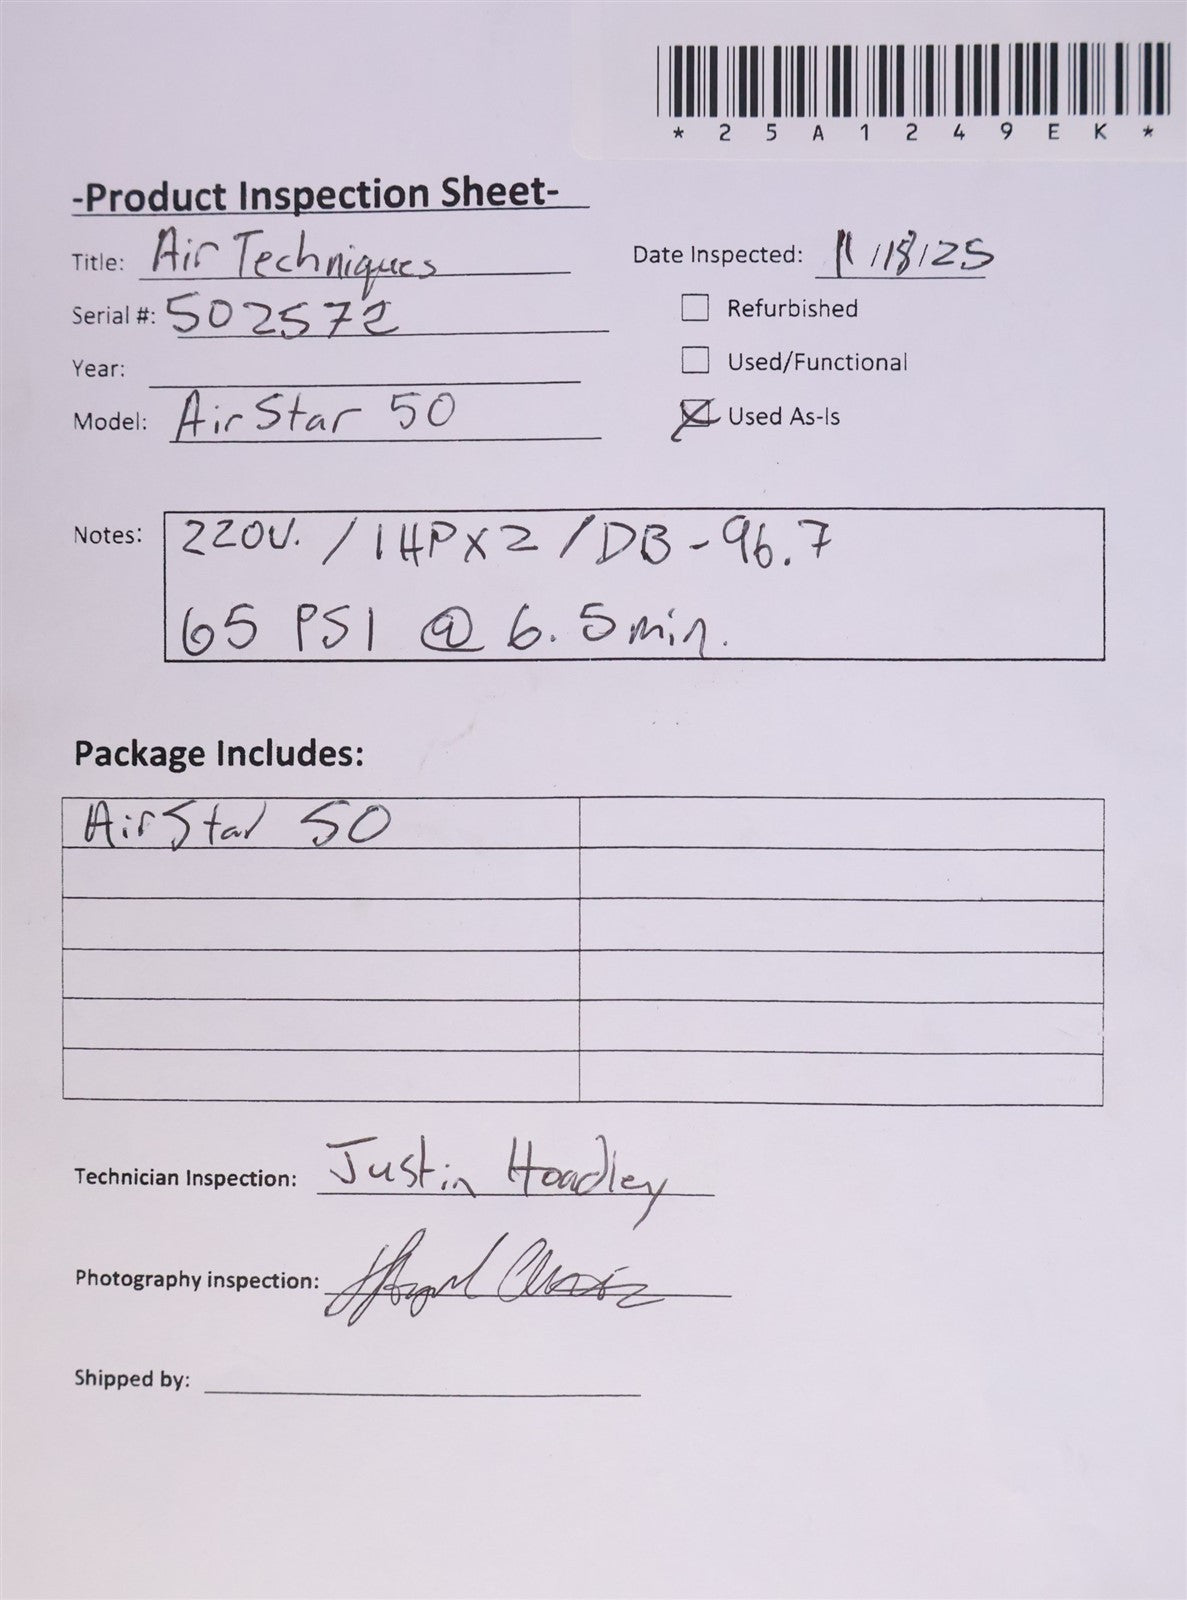 *25A1249EK*
-Product Inspection Sheet-
Title: Air Techniques
Date Inspected: 11/18/25
Serial #: 502572
Refurbished
Year:
Used/Functional
Model: AirStar 50
Used As-Is
Notes: 220V. / 1HPX2 / DB-96.7
65 PSI @ 6.5min.
Package Includes:
AirStar 50
Technician Inspection: Justin Hoadley
Photography inspection:
Shipped by: